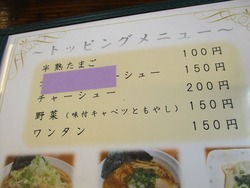 ～トッピングメニュー～
半熟たまご 100円
チャーシュー 150円
チャーシュー 200円
野菜(味付キャベツともやし) 150円
ワンタン 150円